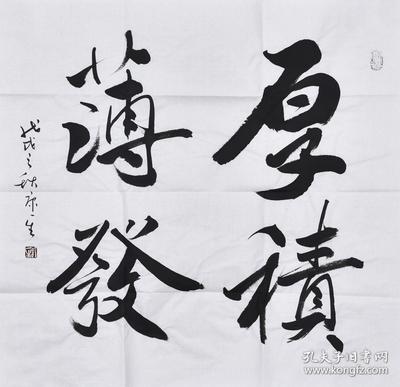 厚積
薄發
戊戌之秋京一生
孔夫子旧书网
www.kongfz.com